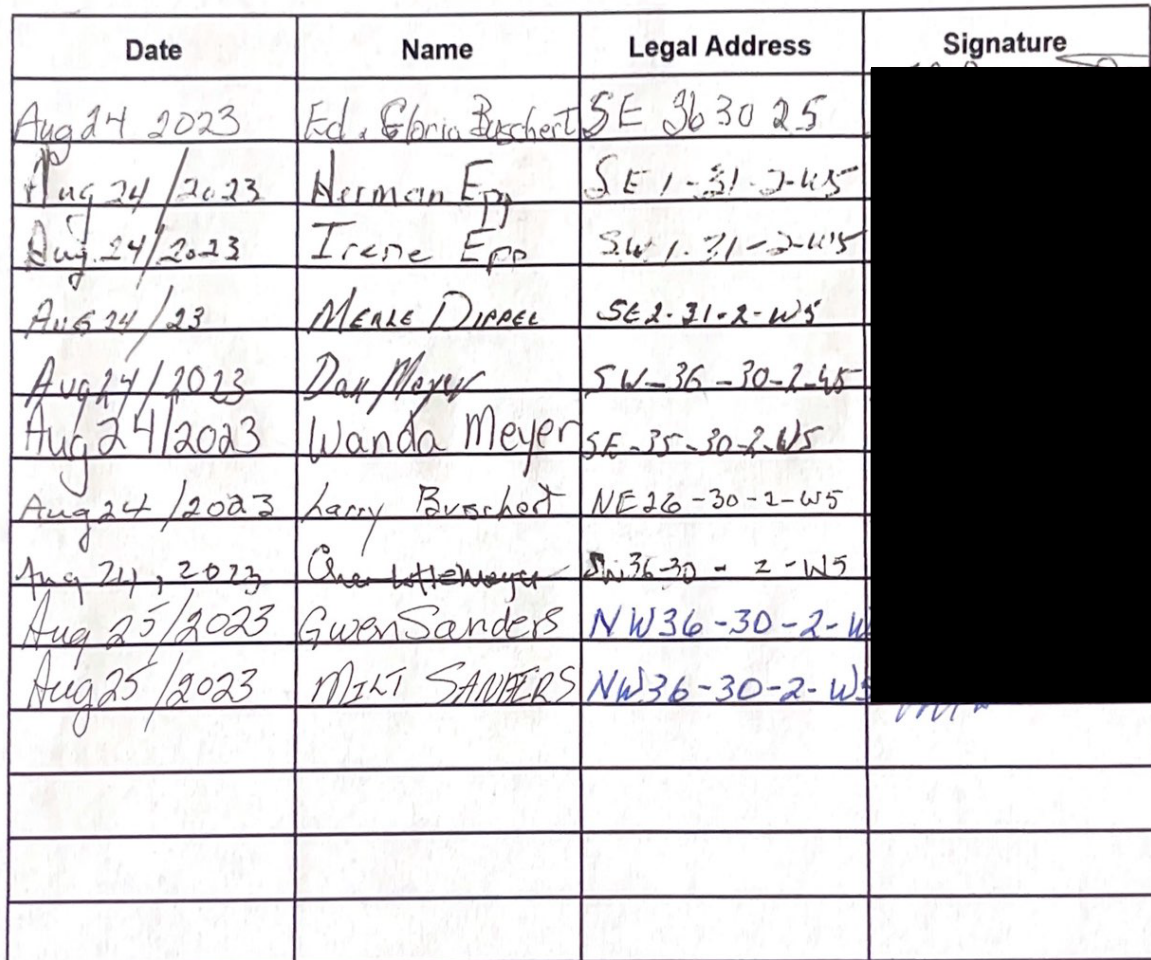 Date Name Legal Address Signature
Aug 24 2023 Ed & Gloria Buschert SE 36 30 25
Aug 24/2023 Herman Epp SE 1-31-2-W5
Aug. 24/2023 Irene Epp S.W 1-31-2-W5
AUG 24/23 MERLE DIPPEL SE 2-31-2-W5
Aug 24/2023 Dan Meyer SW-36-30-2-W5
Aug 24/2023 Wanda Meyer SE-35-30-2-W5
Aug 24/2023 Larry Buschert NE 26-30-2-W5
Aug 24, 2023 Charlotte Meyer SW 36-30-2-W5
Aug 25/2023 Gwen Sanders NW 36-30-2-W
Aug 25/2023 MILT SANDERS NW 36-30-2-W5